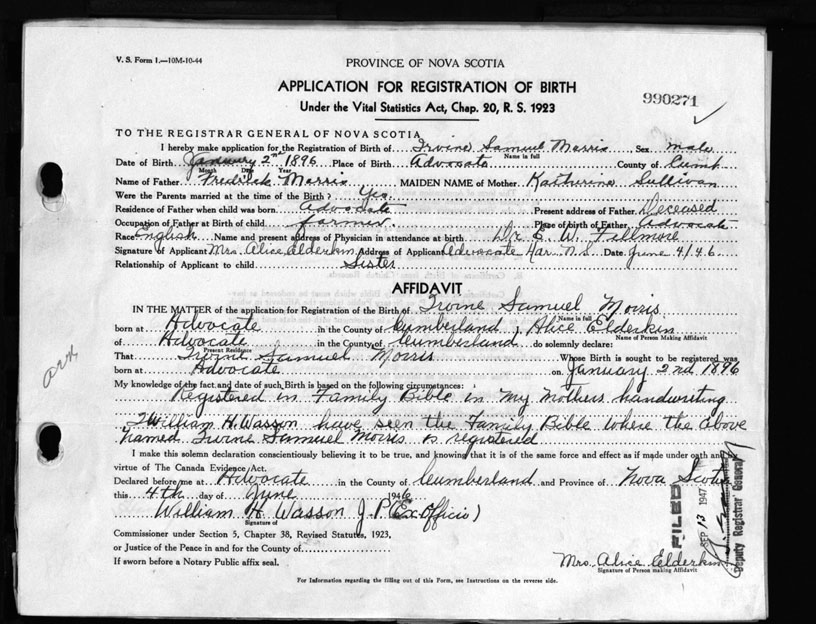 V. S. Form 1.—10M-10-44
PROVINCE OF NOVA SCOTIA
APPLICATION FOR REGISTRATION OF BIRTH
990271
Under the Vital Statistics Act, Chap. 20, R. S. 1923
TO THE REGISTRAR GENERAL OF NOVA SCOTIA
I hereby make application for the Registration of Birth of Irvine Samuel Morris Sex male
Name in full
Date of Birth January 2nd 1896 Place of Birth Advocate County of Cumb
Month Date Year
Name of Father Fredrick Morris MAIDEN NAME of Mother Katherine Sullivan
Were the Parents married at the time of the Birth? Yes
Residence of Father when child was born Advocate Present address of Father Deceased
Occupation of Father at Birth of child farmer Place of birth of Father Advocate
Race English Name and present address of Physician in attendance at birth Dr E. W. Fillmore
Signature of Applicant Mrs Alice Elderkin Address of Applicant Advocate Har N.S. Date June 4/46
Relationship of Applicant to child Sister
AFFIDAVIT
IN THE MATTER of the application for Registration of the Birth of Irvine Samuel Morris
Name in full
born at Advocate in the County of Cumberland I Alice Elderkin
Name of Person Making Affidavit
of Advocate in the County of Cumberland do solemnly declare:
Present Residence
That Irvine Samuel Morris Whose Birth is sought to be registered was
born at Advocate on January 2nd 1896
My knowledge of the fact and date of such Birth is based on the following circumstances:
Registered in Family Bible in My Mothers handwriting
I William H. Wasson have seen the Family Bible where the above
named Irvine Samuel Morris is registered
I make this solemn declaration conscientiously believing it to be true, and knowing that it is of the same force and effect as if made under oath and by
virtue of The Canada Evidence Act.
Declared before me at Advocate in the County of Cumberland and Province of Nova Scotia
this 4th day of June 1946
William H Wasson J.P (Ex Officio)
Signature of
Commissioner under Section 5, Chapter 38, Revised Statutes, 1923,
or Justice of the Peace in and for the County of
If sworn before a Notary Public affix seal.
Mrs. Alice Elderkin
Signature of Person making Affidavit
For Information regarding the filling out of this Form, see Instructions on the reverse side.
FILED
SEP 13 1947
Deputy Registrar General